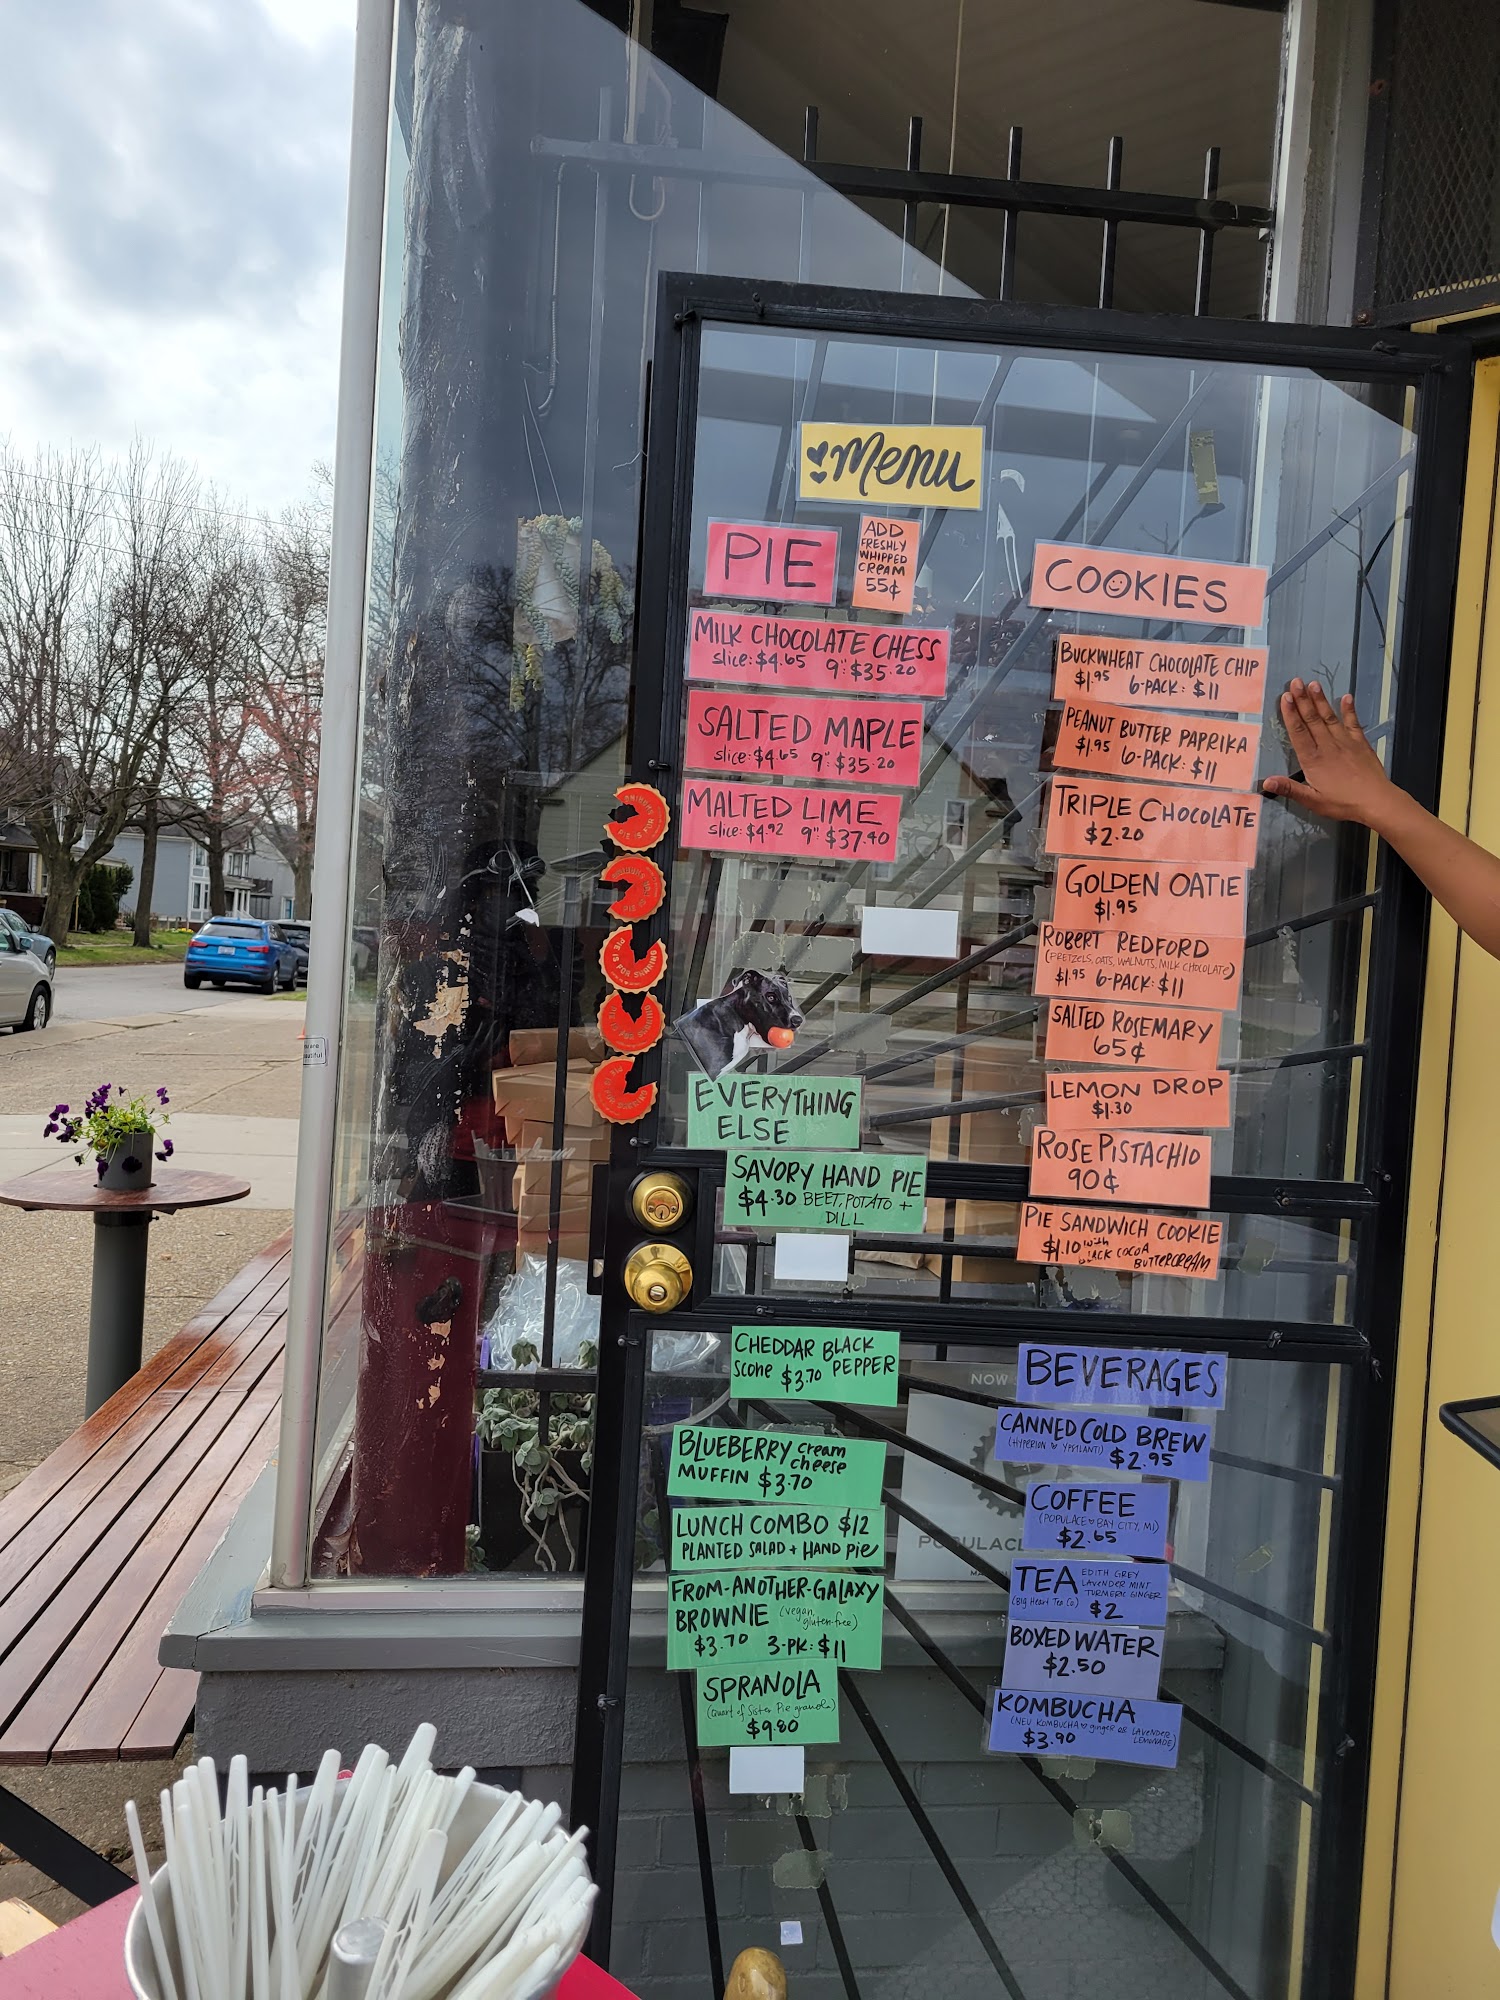 Menu
PIE
ADD
FRESHLY
WHIPPED
CREAM
55¢
MILK CHOCOLATE CHESS
slice: $4.65 9": $35.20
SALTED MAPLE
slice: $4.65 9": $35.20
MALTED LIME
slice: $4.92 9": $37.40
COOKIES
BUCKWHEAT CHOCOLATE CHIP
$1.95 6-PACK: $11
PEANUT BUTTER PAPRIKA
$1.95 6-PACK: $11
TRIPLE CHOCOLATE
$2.20
GOLDEN OATIE
$1.95
ROBERT REDFORD
(PRETZELS, OATS, WALNUTS, MILK CHOCOLATE)
$1.95 6-PACK: $11
SALTED ROSEMARY
65¢
LEMON DROP
$1.30
ROSE PISTACHIO
90¢
PIE SANDWICH COOKIE
$1.10 with
BLACK COCOA
BUTTERCREAM
PIE IS FOR SHARING
PIE IS FOR SHARING
PIE IS FOR SHARING
PIE IS FOR SHARING
PIE IS FOR SHARING
EVERYTHING
ELSE
SAVORY HAND PIE
$4.30 BEET, POTATO +
DILL
CHEDDAR BLACK
scone $3.70 PEPPER
BLUEBERRY cream
cheese
MUFFIN $3.70
LUNCH COMBO $12
PLANTED SALAD + HAND PIE
FROM-ANOTHER-GALAXY
BROWNIE (vegan,
gluten-free)
$3.70 3-PK: $11
SPRANOLA
(Quart of Sister Pie granola)
$9.80
BEVERAGES
CANNED COLD BREW
(HYPERION ♥ YPSILANTI) $2.95
COFFEE
(POPULACE ♥ BAY CITY, MI)
$2.65
TEA EDITH GREY
LAVENDER MINT
TURMERIC GINGER
(Big Heart Tea Co) $2
BOXED WATER
$2.50
KOMBUCHA
(NEU KOMBUCHA ♥ ginger or LAVENDER
LEMONADE)
$3.90
NOW
POPULACE